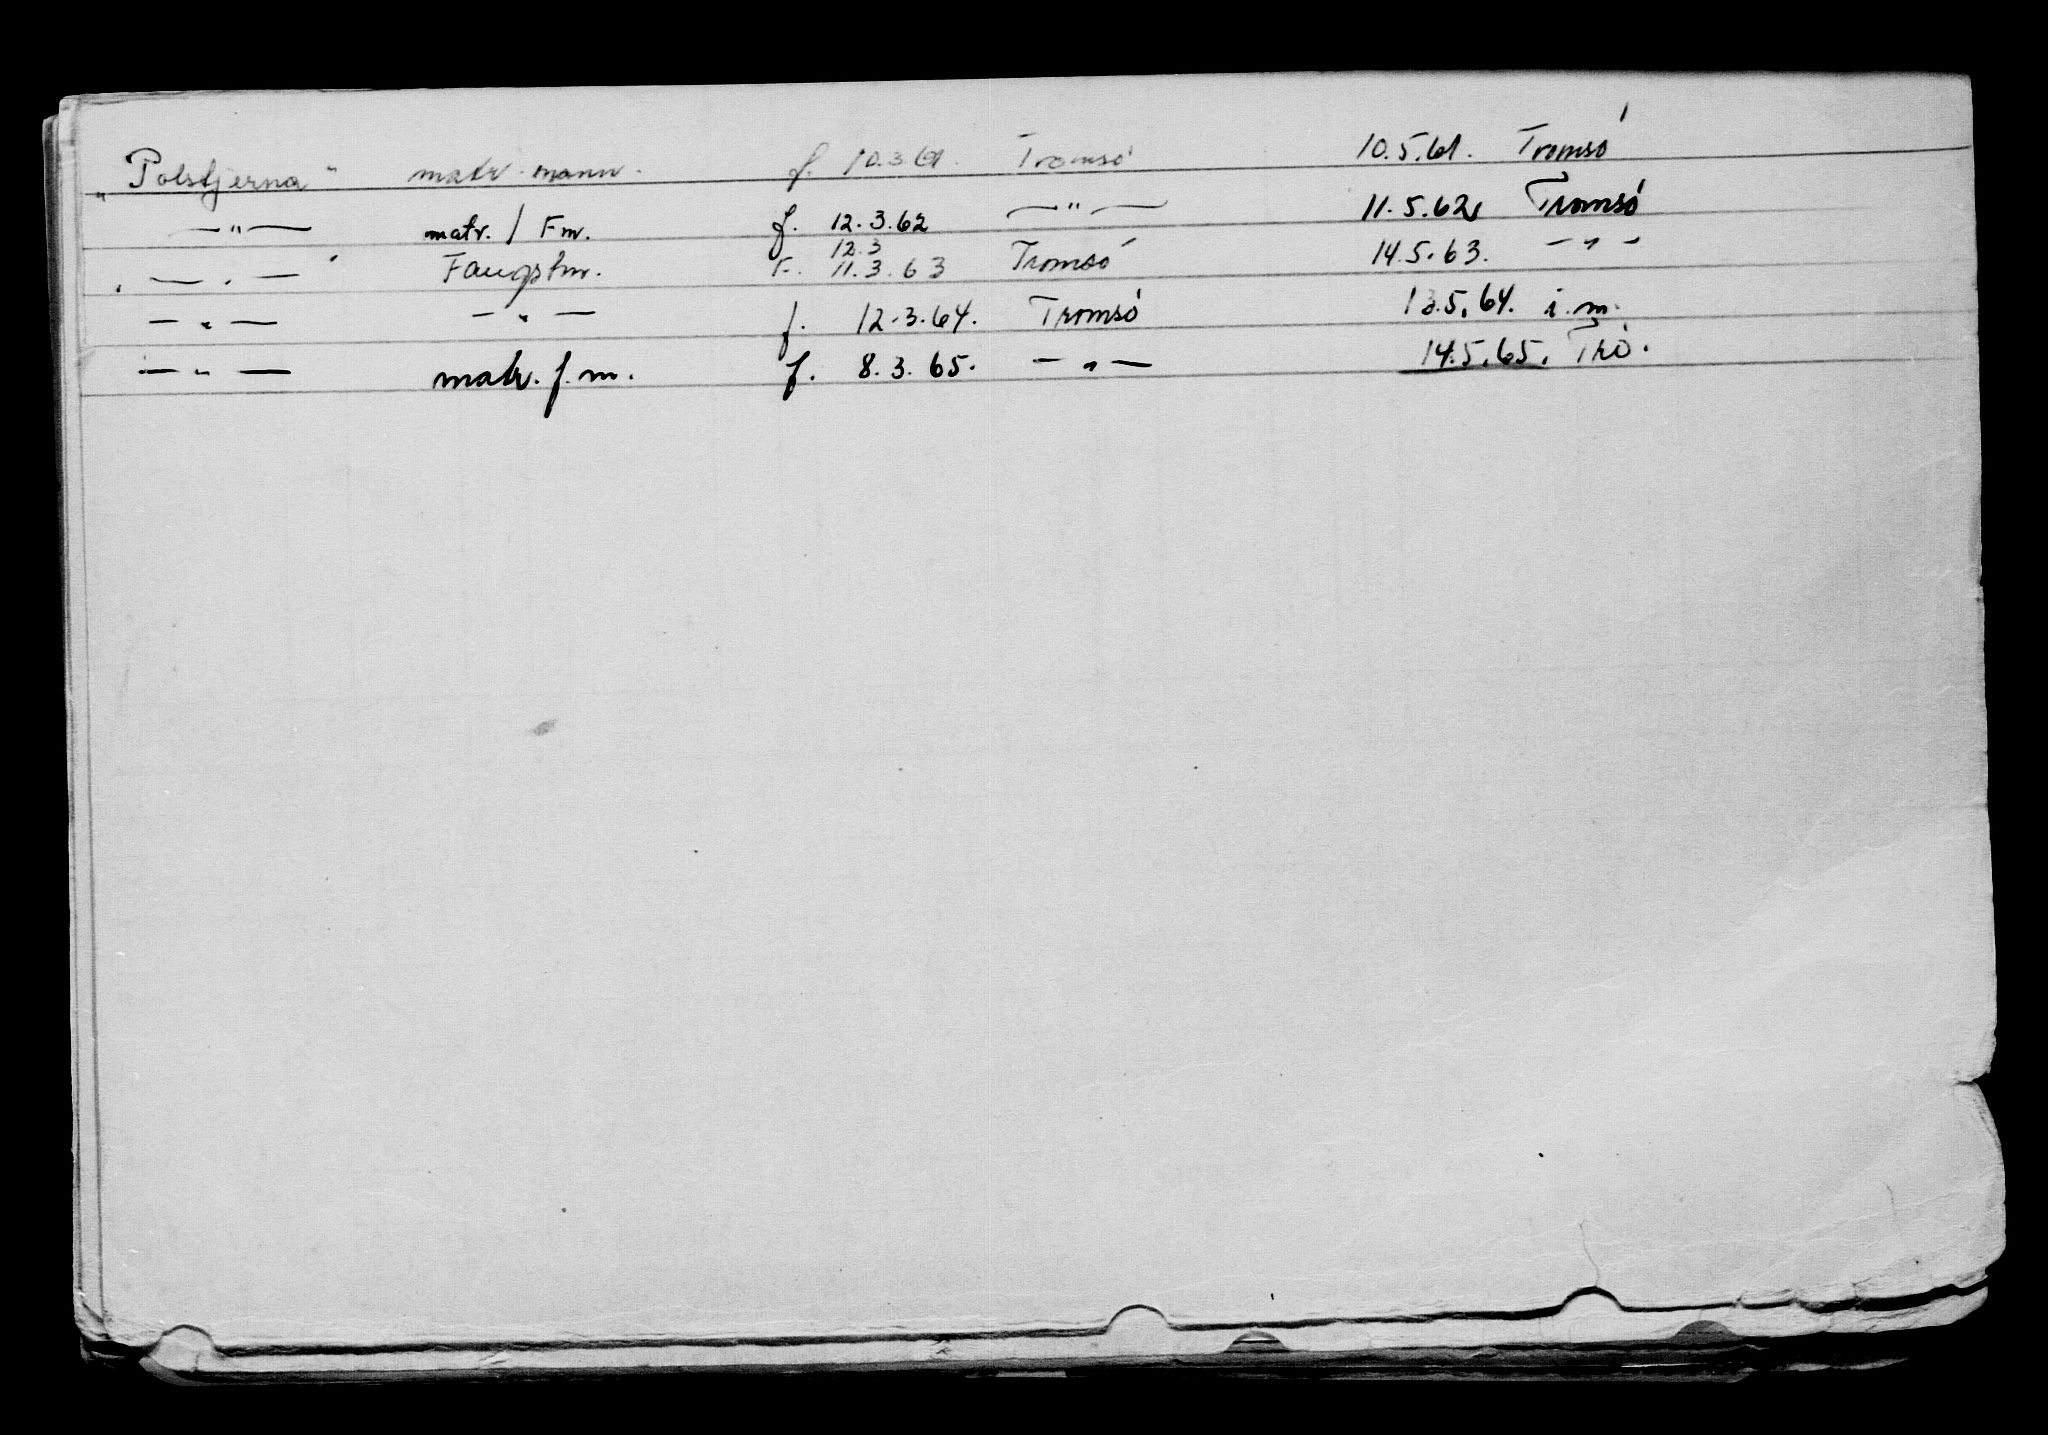 "Polstjerna" matr. mann. f. 10.3.61. Tromsö 10.5.61. Tromsö
— " — matr. / Fm. f. 12.3.62 — " — 11.5.62, Tromsö
12.3
" — " — " Fangstm. F. 11.3.63 Tromsö 14.5.63. — " —
— " — — " — f. 12.3.64. Tromsö 13.5.64. i.m.
— " — matr. f.m. f. 8.3.65. — " — 14.5.65. Trö.